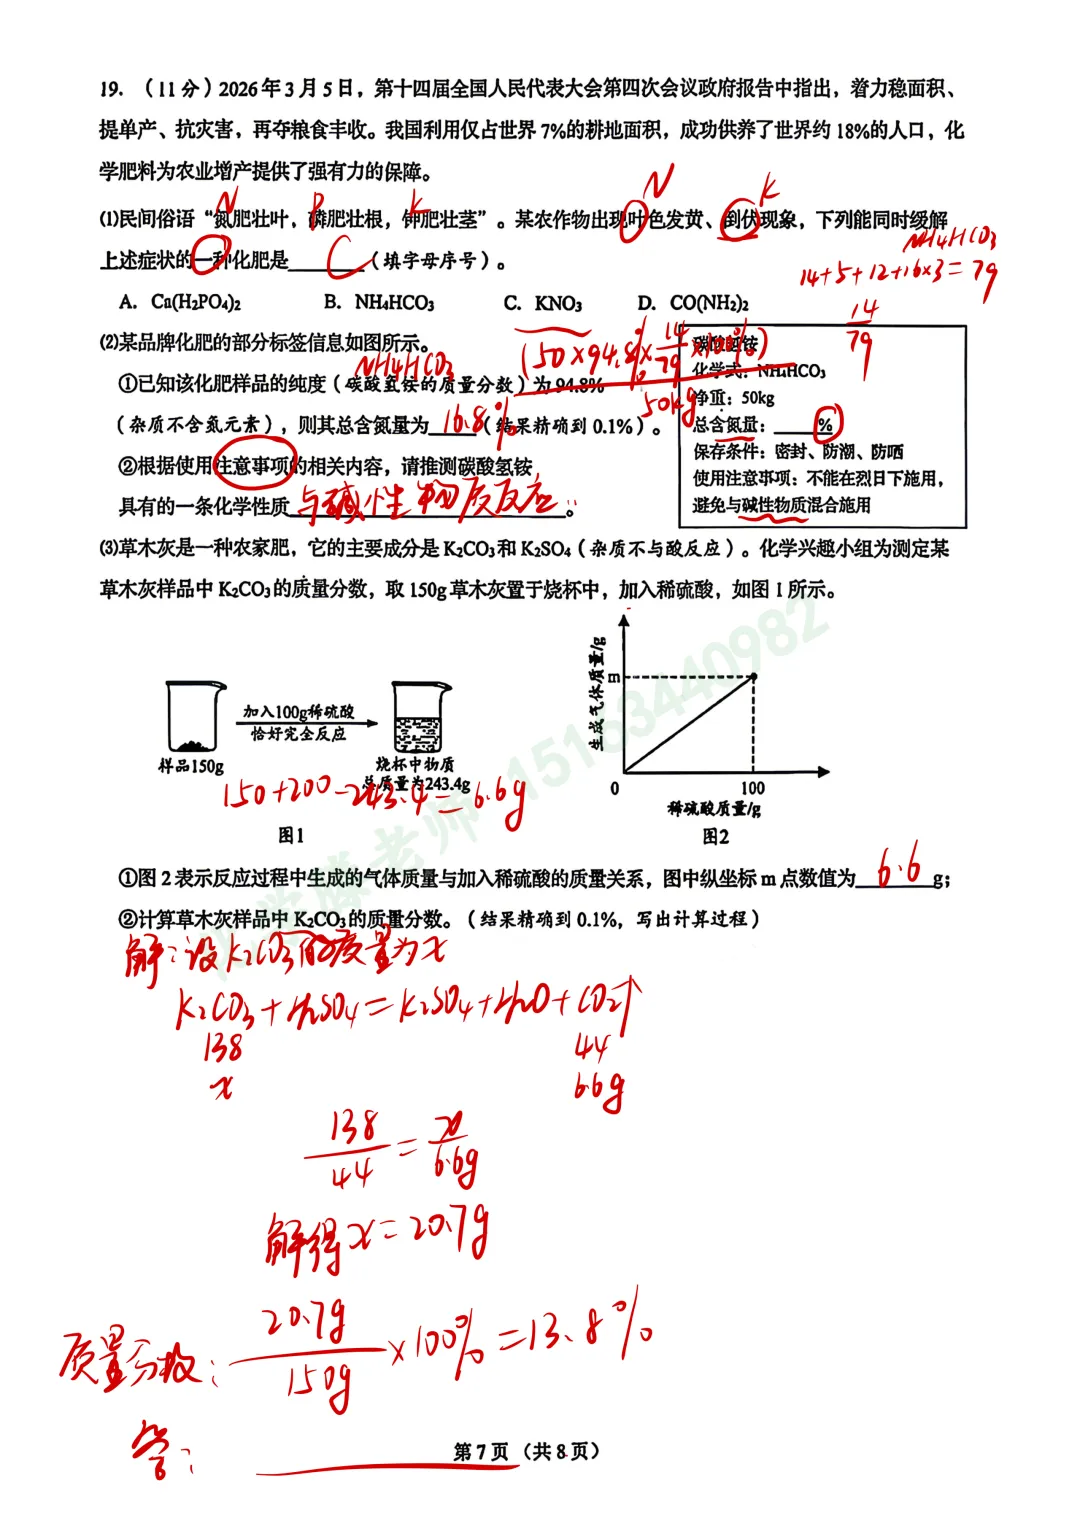 19. （11分）2026年3月5日，第十四届全国人民代表大会第四次会议政府报告中指出，着力稳面积、
提单产、抗灾害，再夺粮食丰收。我国利用仅占世界7%的耕地面积，成功供养了世界约18%的人口，化
学肥料为农业增产提供了强有力的保障。
N P K N K
⑴民间俗语“氮肥壮叶，磷肥壮根，钾肥壮茎”。某农作物出现叶色发黄、倒伏现象，下列能同时缓解
上述症状的一种化肥是 C （填字母序号）。
NH4HCO3
14+5+12+16×3=79
A. Ca(H₂PO₄)₂ B. NH₄HCO₃ C. KNO₃ D. CO(NH₂)₂
14
79
⑵某品牌化肥的部分标签信息如图所示。
NH4HCO3
(50×94.8%×14/79×100%)
50kg
①已知该化肥样品的纯度（碳酸氢铵的质量分数）为94.8%
（杂质不含氮元素），则其总含氮量为 16.8% （结果精确到0.1%）。
②根据使用注意事项的相关内容，请推测碳酸氢铵
具有的一条化学性质 与碱性物质反应 。
碳酸氢铵
化学式：NH₄HCO₃
净重：50kg
总含氮量：____%
保存条件：密封、防潮、防晒
使用注意事项：不能在烈日下施用，
避免与碱性物质混合施用
⑶草木灰是一种农家肥，它的主要成分是K₂CO₃和K₂SO₄（杂质不与酸反应）。化学兴趣小组为测定某
草木灰样品中K₂CO₃的质量分数，取150g草木灰置于烧杯中，加入稀硫酸，如图1所示。
加入100g稀硫酸
恰好完全反应
样品150g
烧杯中物质
总质量为243.4g
150+200-243.4=6.6g
图1
生成气体质量/g
m
0
100
稀硫酸质量/g
图2
15163440982
①图2表示反应过程中生成的气体质量与加入稀硫酸的质量关系，图中纵坐标m点数值为 6.6 g；
②计算草木灰样品中K₂CO₃的质量分数。（结果精确到0.1%，写出计算过程）
解：设K2CO3的质量为x
K2CO3+H2SO4=K2SO4+H2O+CO2↑
138 44
x 6.6g
138/44=x/6.6g
解得x=20.7g
质量分数：20.7g/150g×100%=13.8%
答：
第7页（共8页）